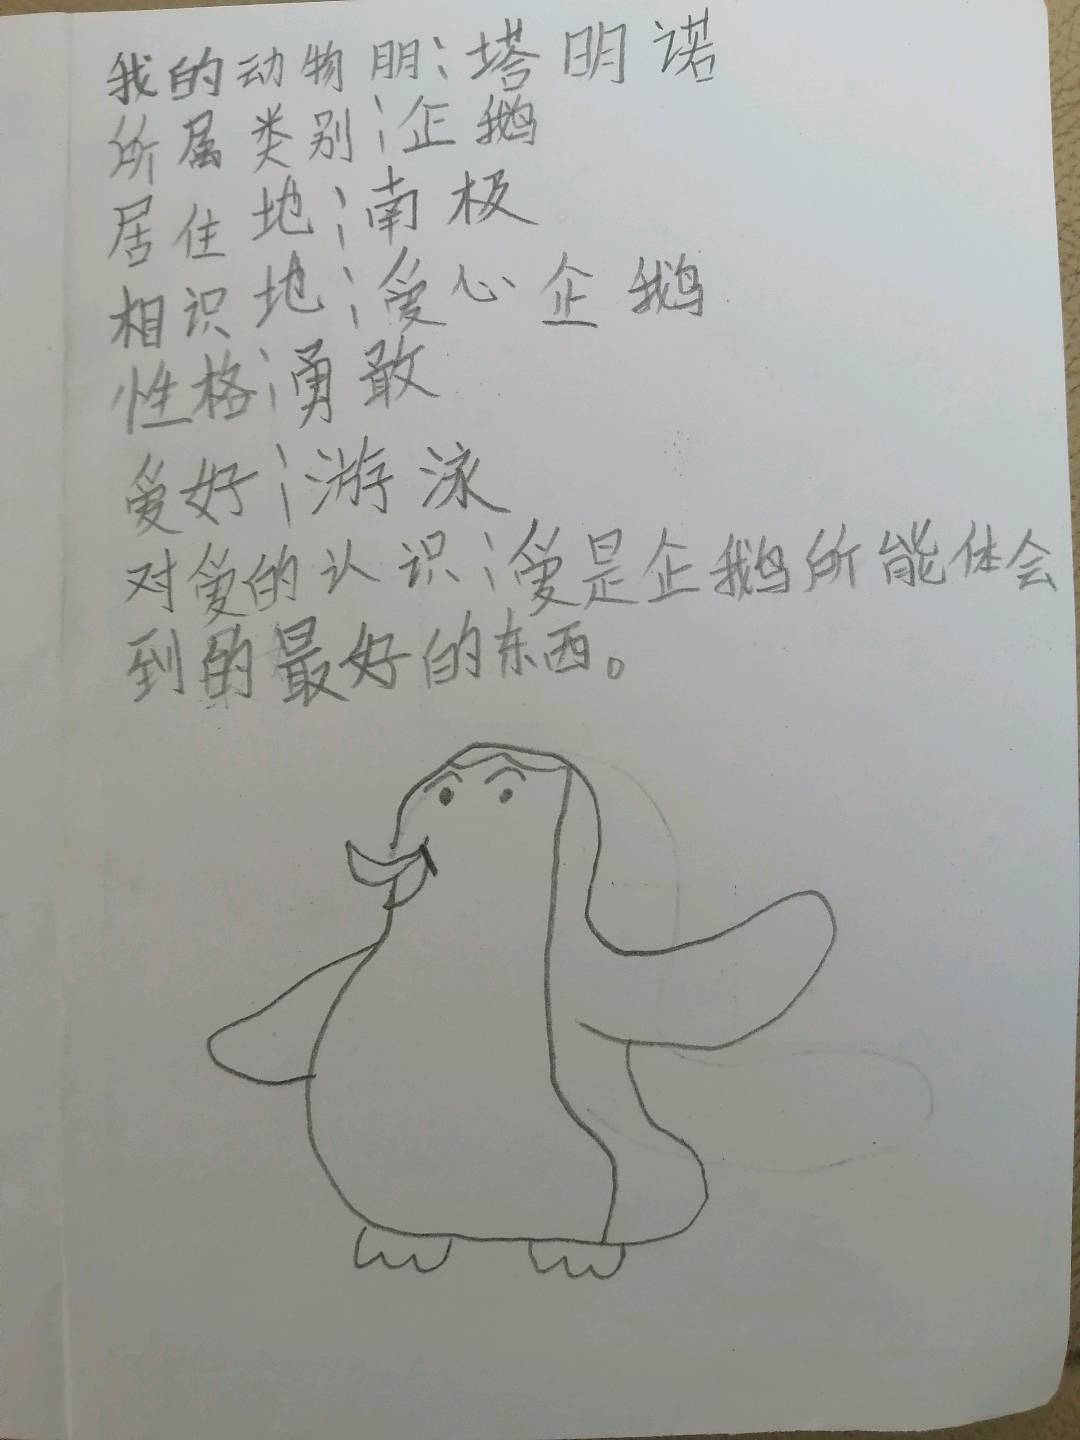 我的动物朋：塔明诺
所属类别：企鹅
居住地：南极
相识地：爱心企鹅
性格：勇敢
爱好：游泳
对爱的认识：爱是企鹅所能体会
到的最好的东西。